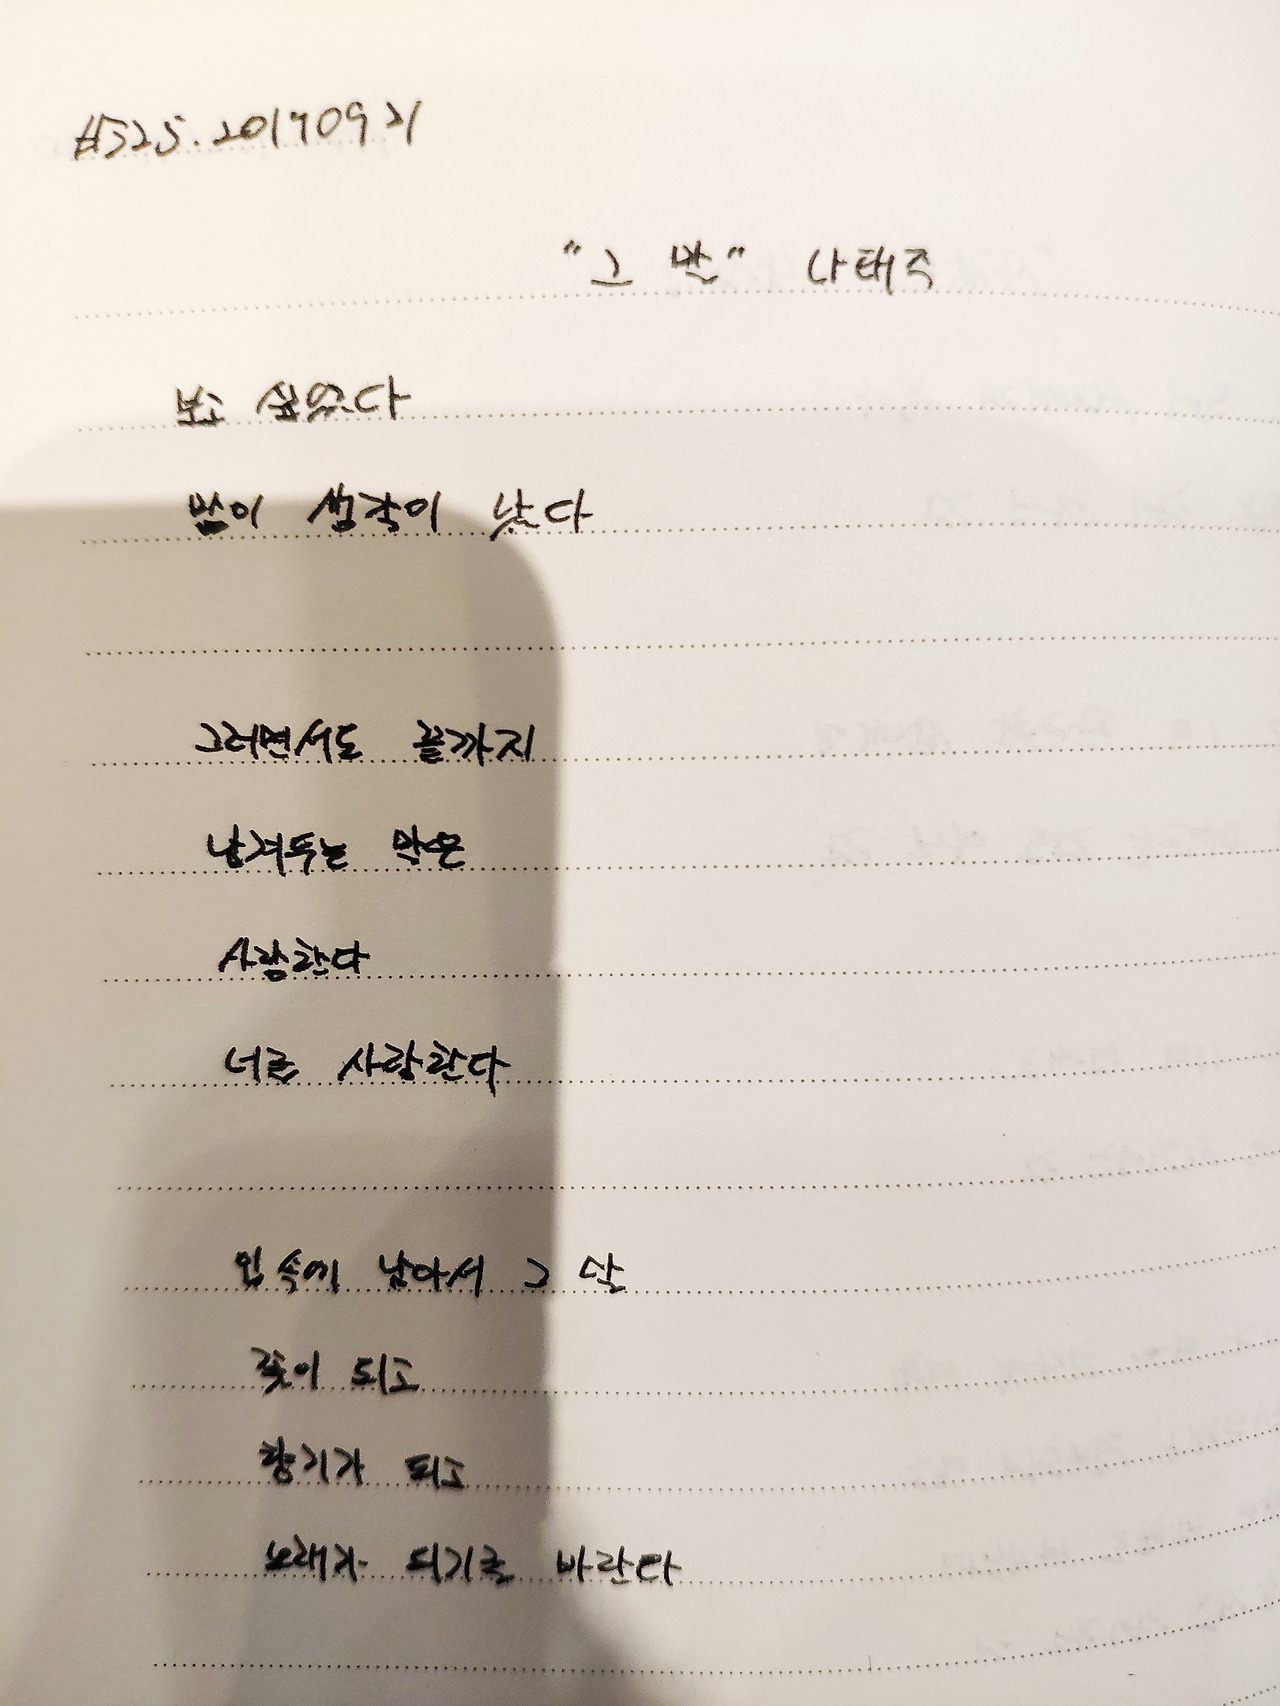 #525. 20170921
"그 말" 나태주
보고 싶었다
많이 생각이 났다
그러면서도 끝까지
남겨두는 말은
사랑한다
너를 사랑한다
입속에 남아서 그 말
꽃이 되고
향기가 되고
노래가 되기를 바란다